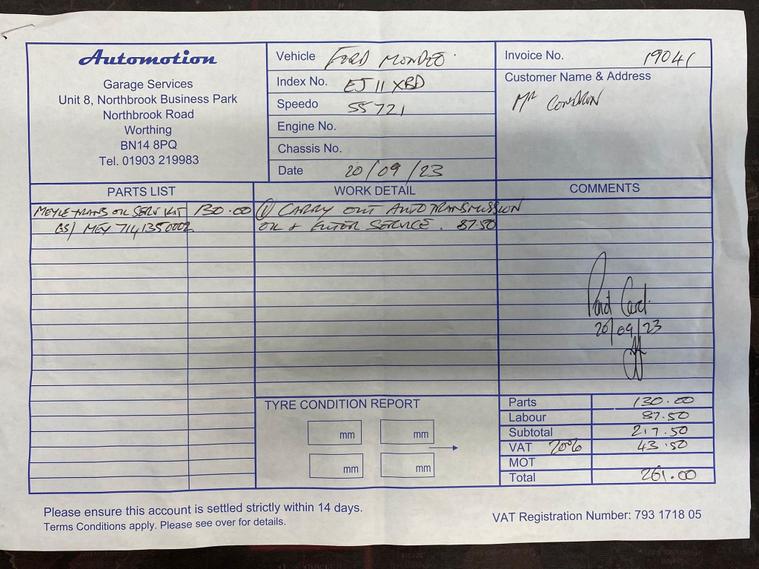 Automotion
Garage Services
Unit 8, Northbrook Business Park
Northbrook Road
Worthing
BN14 8PQ
Tel. 01903 219983
Vehicle FORD MONDEO
Index No. EJ11 XBD
Speedo 55721
Engine No.
Chassis No.
Date 20/09/23
Invoice No. 19041
Customer Name & Address
MR CONDRON
PARTS LIST
MEYLE TRANS OIL SERV KIT 130.00
MEY 7141350002
WORK DETAIL
① CARRY OUT AUTO TRANSMISSION
OIL & FILTER SERVICE. 87.50
COMMENTS
Paid Card.
20/09/23
TYRE CONDITION REPORT
mm mm
mm mm
Parts 130.00
Labour 87.50
Subtotal 217.50
VAT 20% 43.50
MOT
Total 261.00
Please ensure this account is settled strictly within 14 days.
Terms Conditions apply. Please see over for details.
VAT Registration Number: 793 1718 05